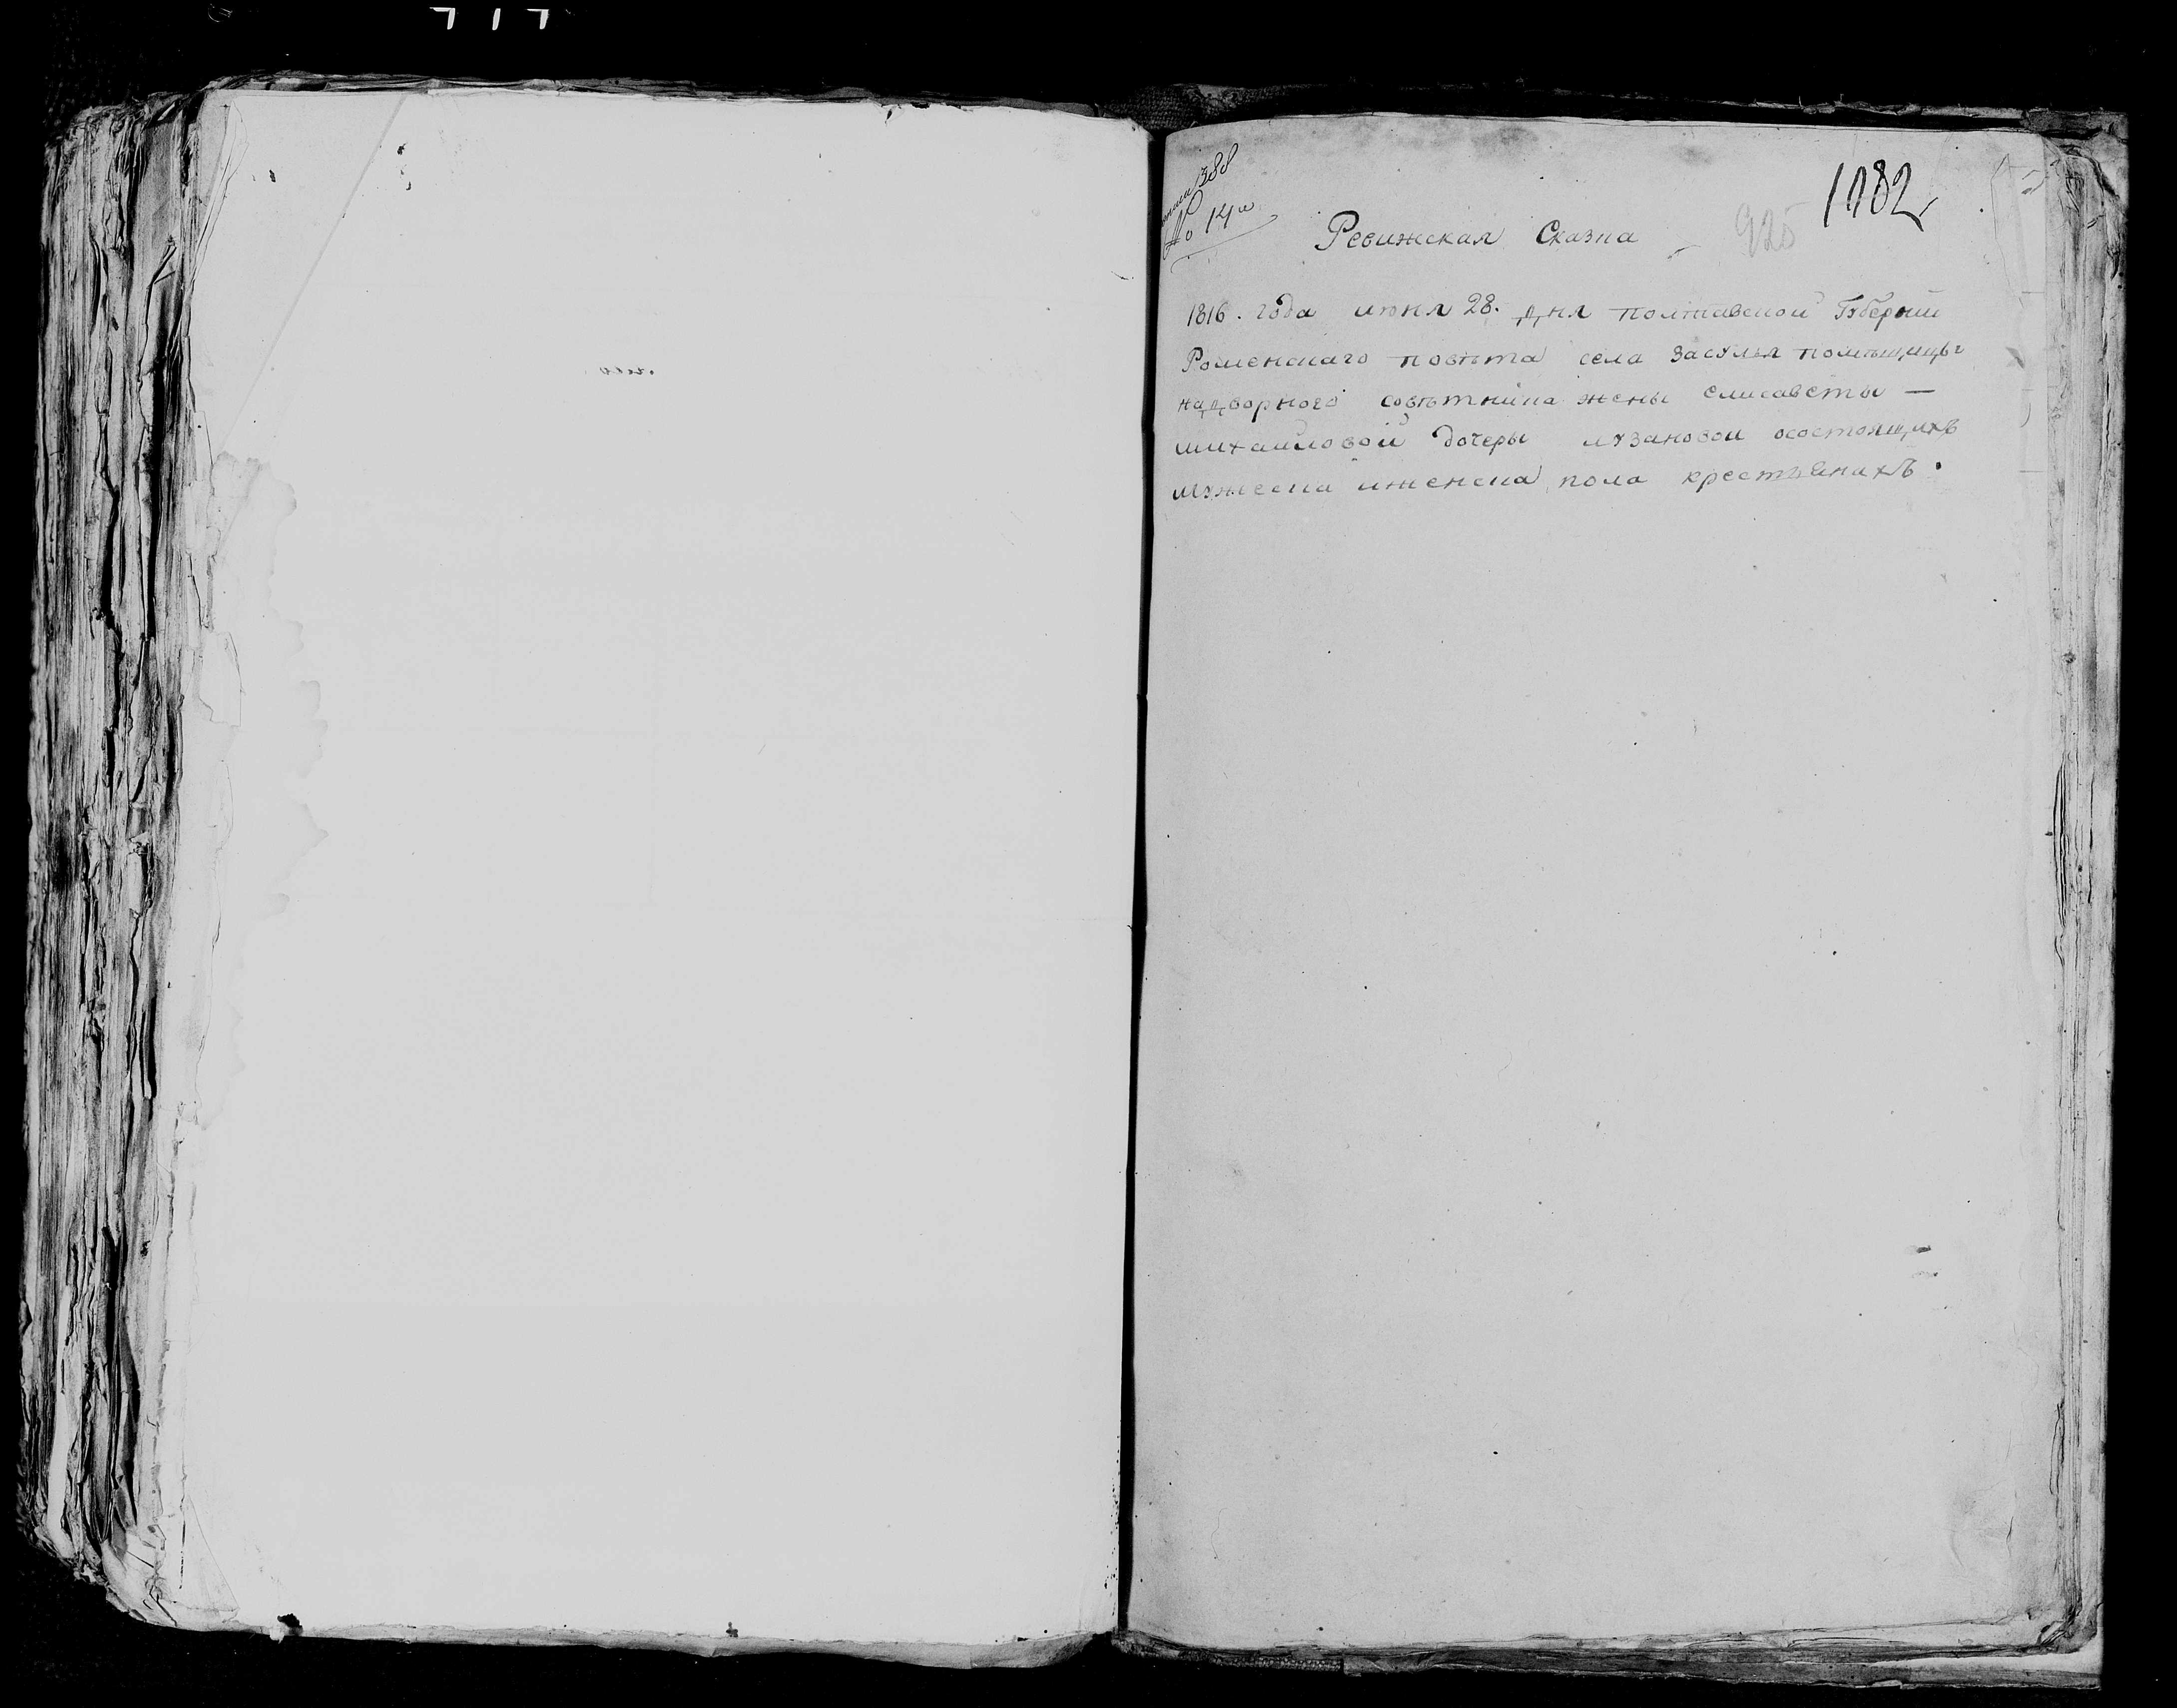 388
№ 14й
1082
925
Ревижская Сказка
1816. года июня 28. дня полтавской Губернии
Роменскаго повѣта села Засулья помѣщицы
надворного совѣтника жены Елисаветы —
михайловой дочеры лузановой осостоящихъ
мужеска иженска пола крестьянахъ.